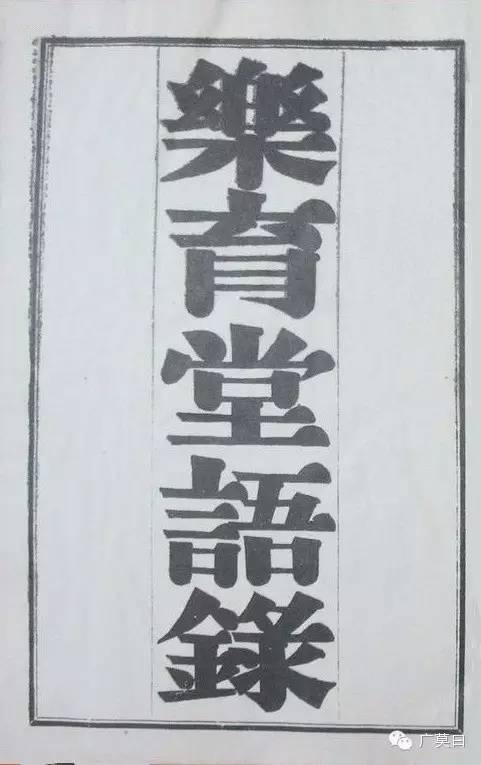 樂育堂語錄
广莫日